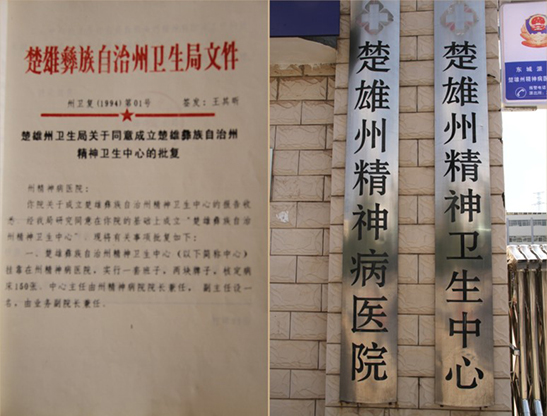 楚雄彝族自治州卫生局文件
州卫复(1994)第01号 签发:王其明
楚雄州卫生局关于同意成立楚雄彝族自治州
精神卫生中心的批复
州精神病医院:
你院关于成立楚雄彝族自治州精神卫生中心的报告收
悉 经我局研究同意在你院的基础上成立“楚雄彝族自治
州精神卫生中心”。现将有关事项批复如下:
一、楚雄彝族自治州精神卫生中心(以下简称中心)
挂靠在州精神病医院,实行一套班子,两块牌子,核定病
床150张。中心主任由州精神病院院长兼任。副主任设一
名,由业务副院长兼任。
楚雄州精神病医院
楚雄州精神卫生中心
楚雄州精神病医